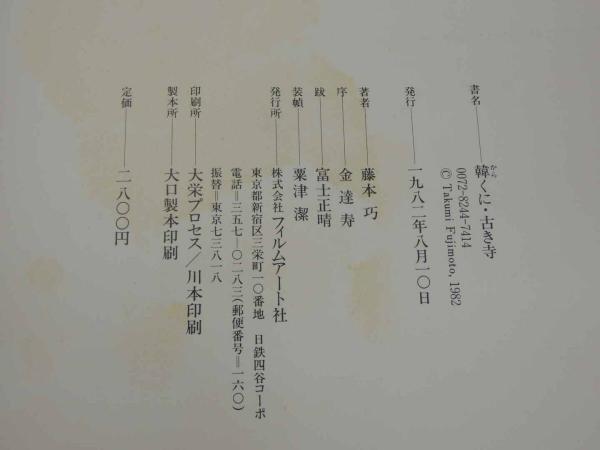 書名――韓くに・古き寺
から
0072-8244-7414
© Takumi Fujimoto, 1982
発行――一九八二年八月一〇日
著者――藤本 巧
序――金 達寿
跋――富士正晴
装幀――粟津 潔
発行所――株式会社フィルムアート社
東京都新宿区三栄町一〇番地 日鉄四谷コーポ
電話＝三五七―〇二八三(郵便番号＝一六〇)
振替＝東京七三八一八
印刷所――大栄プロセス／川本印刷
製本所――大口製本印刷
定価――二八〇〇円